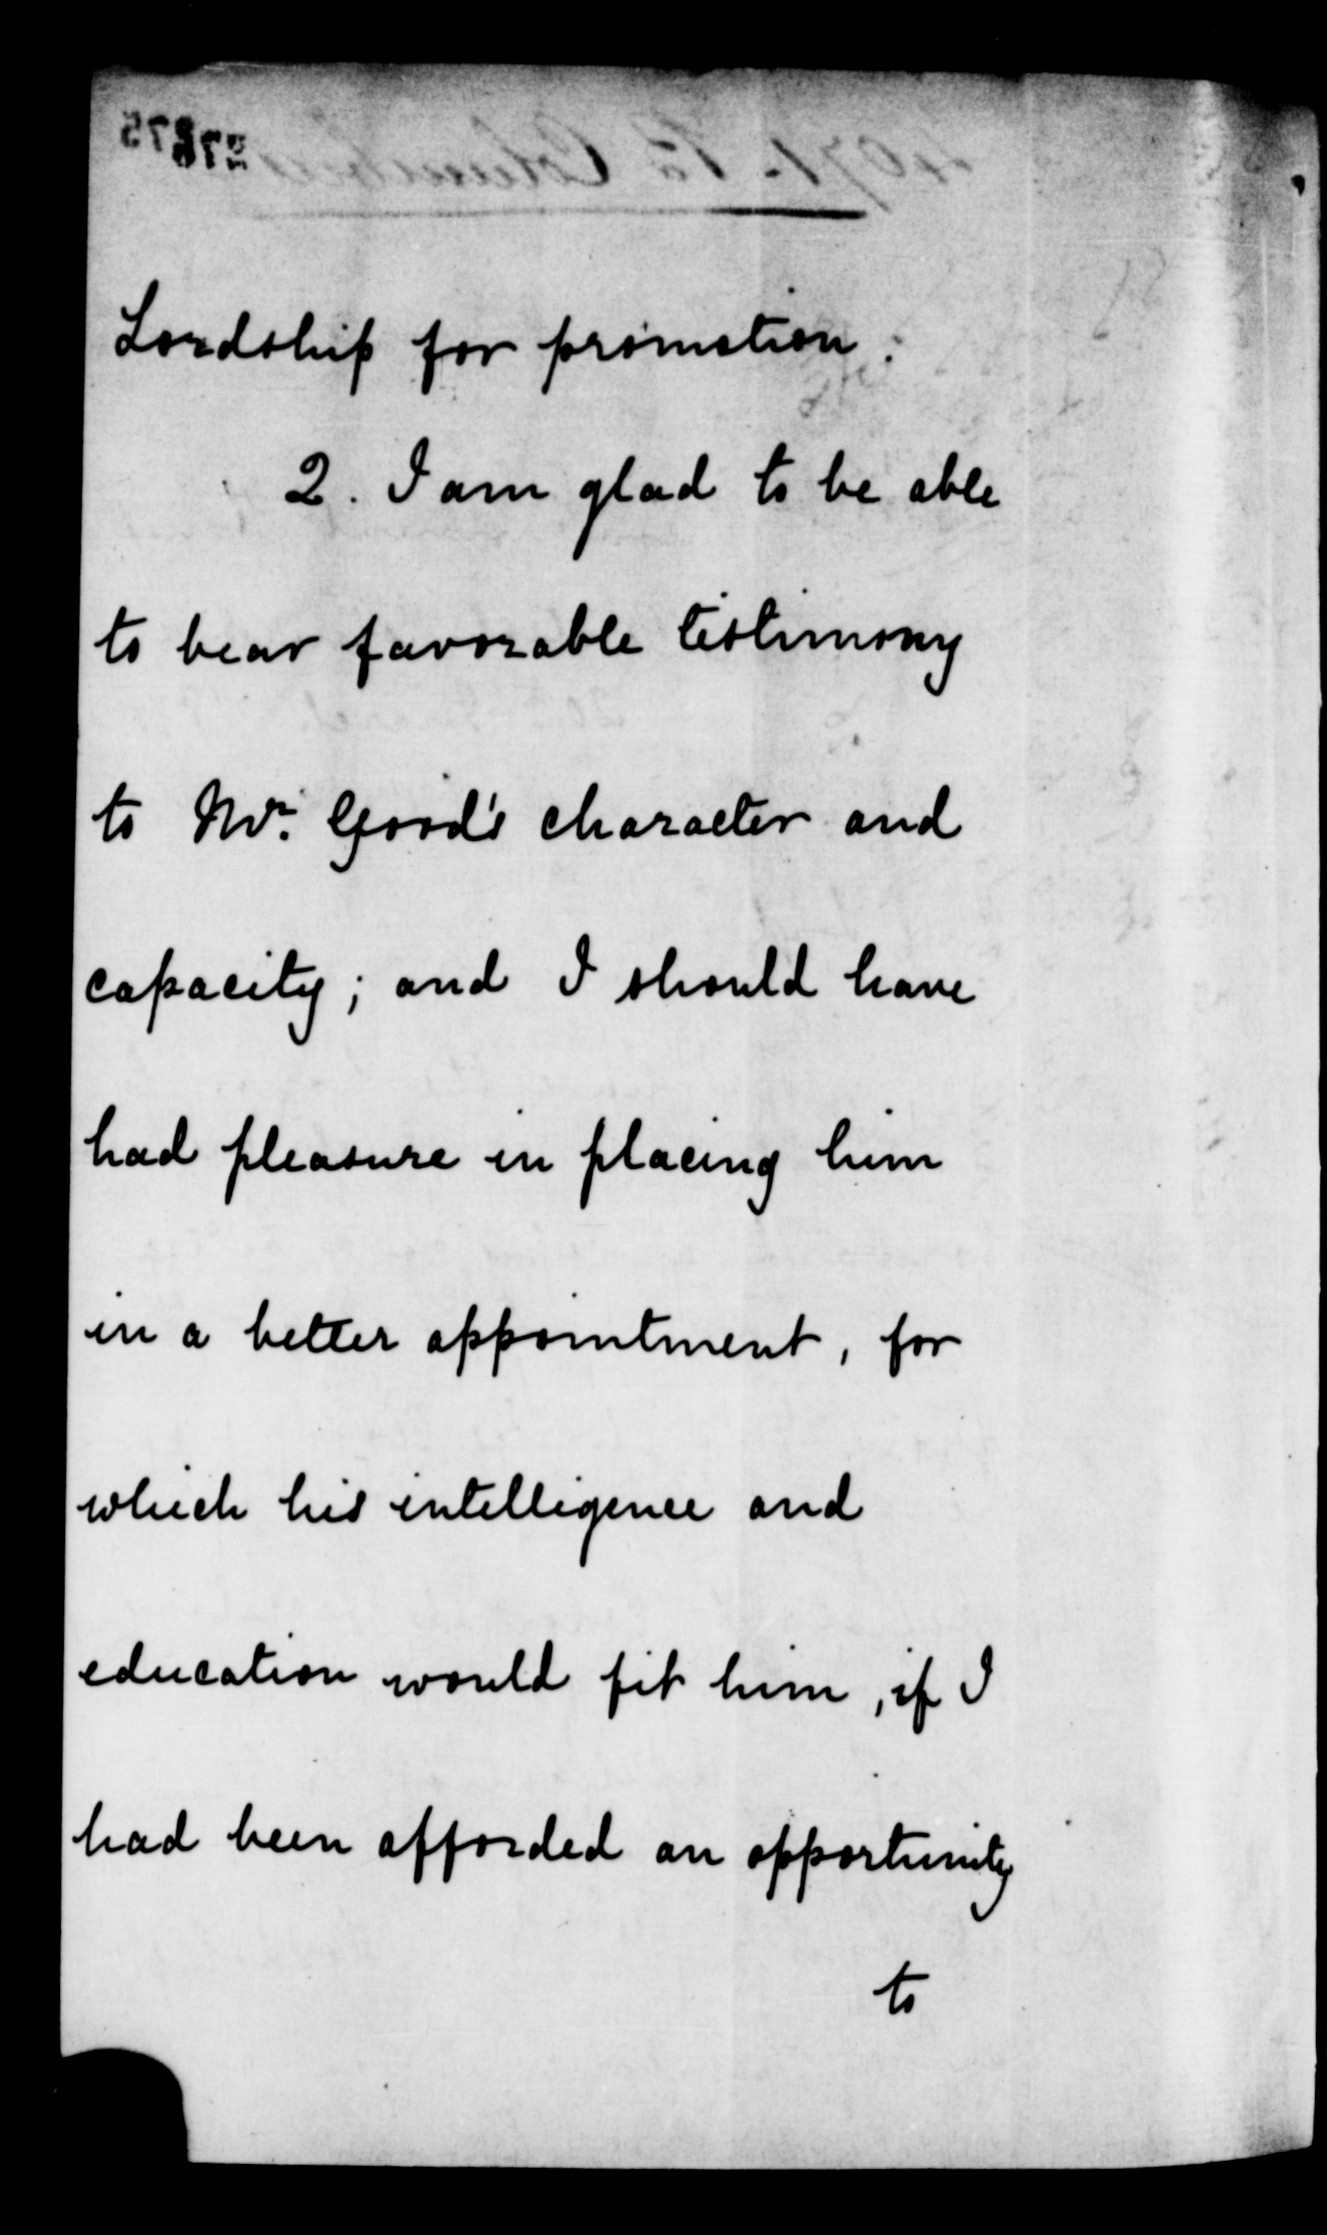 Lordship for promotion.
2. I am glad to be able
to bear favorable testimony
to Mr. Good's character and
capacity; and I should have
had pleasure in placing him
in a better appointment, for
which his intelligence and
education would fit him, if I
had been afforded an opportunity
to